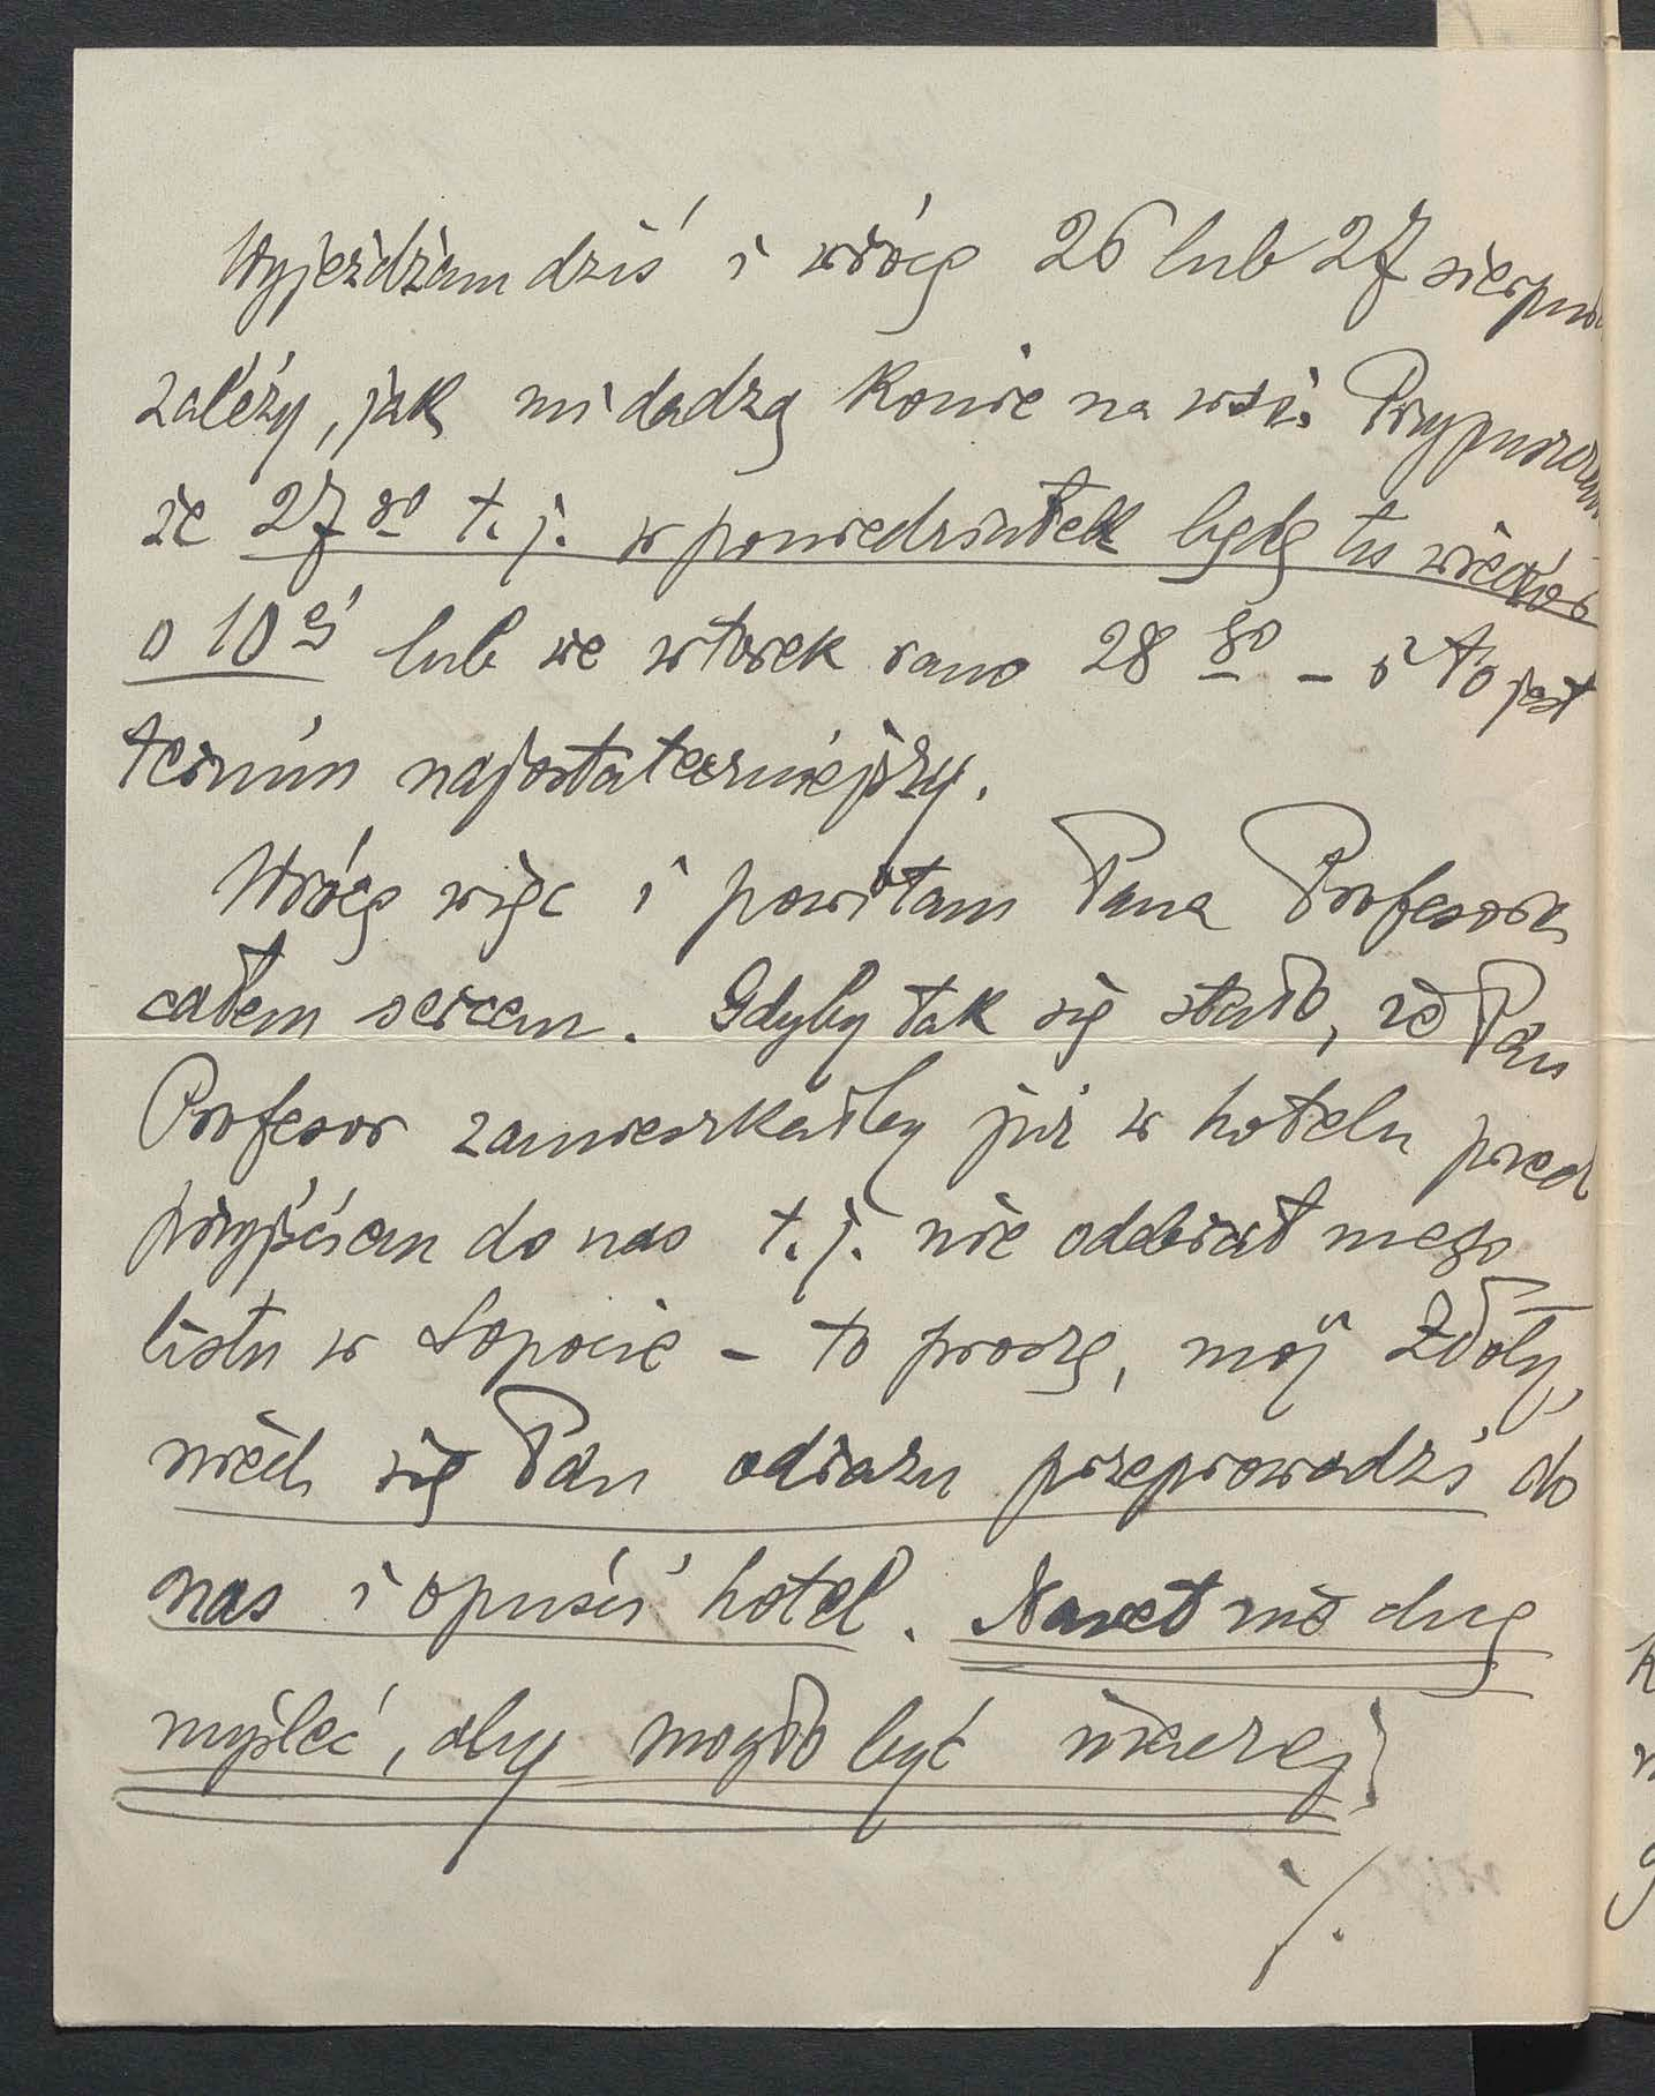 Wyjeżdżam dziś i wrócę 26 lub 27 sierpnia
zależy, jak mi dadzą konie na wsi. Przypuszczam
że 27go t.j. w poniedziałek będę tu wieczór
o 10ej lub we wtorek rano 28go – i to jest
termin najostateczniejszy.
Wrócę więc i powitam Pana Profesora
całem sercem. Gdyby tak się stało, że Pan
Profesor zamieszkałby już w hotelu przed
przyjściem do nas t.j. nie odebrał mego
listu w Sopocie – to proszę, mój Złoty,
niech się Pan odrazu przeprowadzi do
nas i opuści hotel. Nawet nie chcę
myśleć, aby mogło być inaczej!
./.